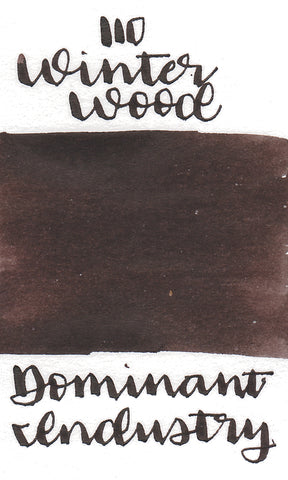 110
Winter
Wood
Dominant
Industry